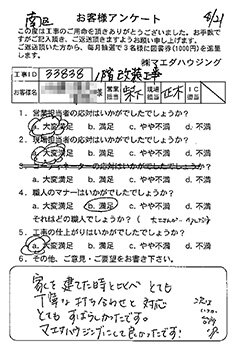 南区
お客様アンケート
8/21
この度は工事のご用命を頂きありがとうございました。お手数で
すがご記入頂き、ご返送頂きますようお願い申し上げます。
ご返送頂いた方から、毎月抽選で3名様に図書券(1000円)を進呈
します。
㈱マエダハウジング
工事ID 33838 1階改装工事
お客様名 様 営業担当 現場担当 正木 IC担当
1. 営業担当者の応対はいかがでしたでしょうか?
a. 大変満足 b. 満足 c. やや不満 d. 不満
2. 現場担当者の応対はいかがでしたでしょうか?
a. 大変満足 b. 満足 c. やや不満 d. 不満
a. 大変満足 b. 満足 c. やや不満 d. 不満
4. 職人のマナーはいかがでしたでしょうか?
a. 大変満足 b. 満足 c. やや不満 d. 不満
それはどの職人でしょうか?
5. 工事の仕上がりはいかがでしたでしょうか?
a. 大変満足 b. 満足 c. やや不満 d. 不満
6. その他、ご意見・ご要望をお書き下さい。
家を建てた時と比べ とても
丁寧な打ち合わせと対応
とてもすばらしかったです。
マエダハウジングにして良かったです!